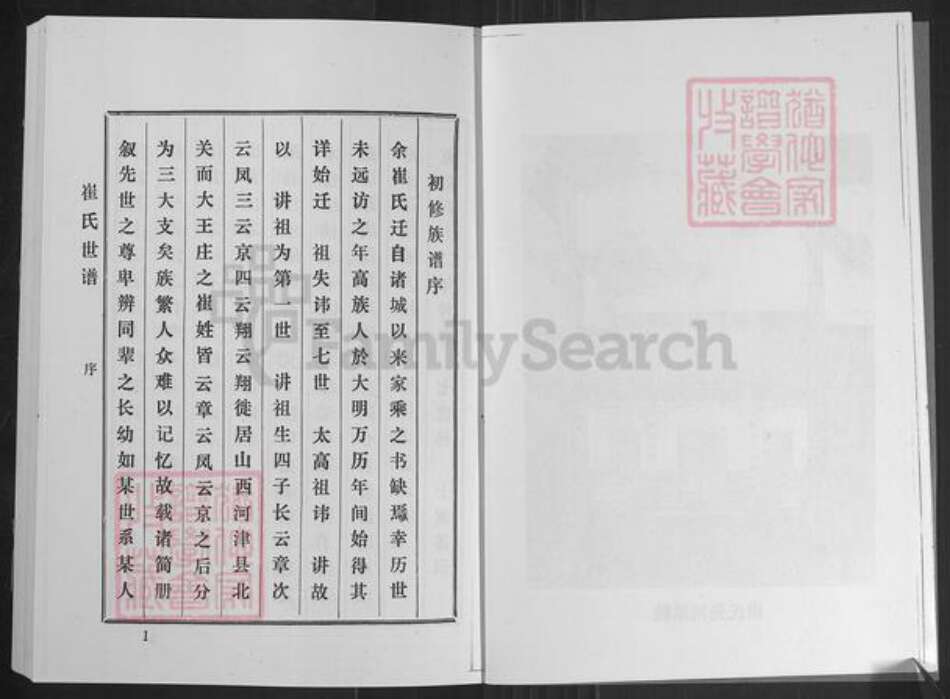 初修族谱序
余崔氏迁自诸城以来家乘之书缺焉幸历世
未远访之年高族人於大明万历年间始得其
详始迁 祖失讳至七世 太高祖讳 讲故
以 讲祖为第一世 讲祖生四子长云章次
云凤三云京四云翔云翔徙居山西河津县北
关而大王庄之崔姓皆云章云凤云京之后分
为三大支矣族繁人众难以记忆故载诸简册
叙先世之尊卑辨同辈之长幼如某世系某人
崔氏世谱 序
1
FamilySearch